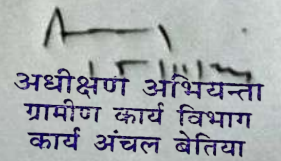 अधीक्षण अभियन्ता
ग्रामीण कार्य विभाग
कार्य अंचल बेतिया